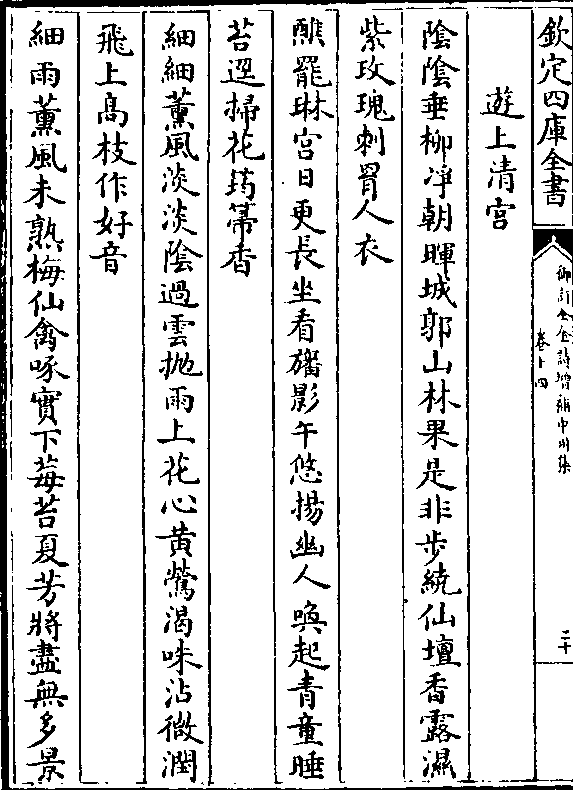 欽定四庫全書
御訂全金詩增補中州集
卷十四
二十
遊上清宮
陰陰垂柳凈朝暉城郭山林果是非步繞仙壇香露濕
紫玫瑰刺罥人衣
醮罷琳宮日更長坐看旛影午悠揚幽人喚起青童睡
苔逕掃花筠箒香
細細薫風淡淡陰過雲抛雨上花心黄鶯渴味沾微潤
飛上髙枝作好音
細雨薫風未熟梅仙禽啄實下莓苔夏芳將盡無多景